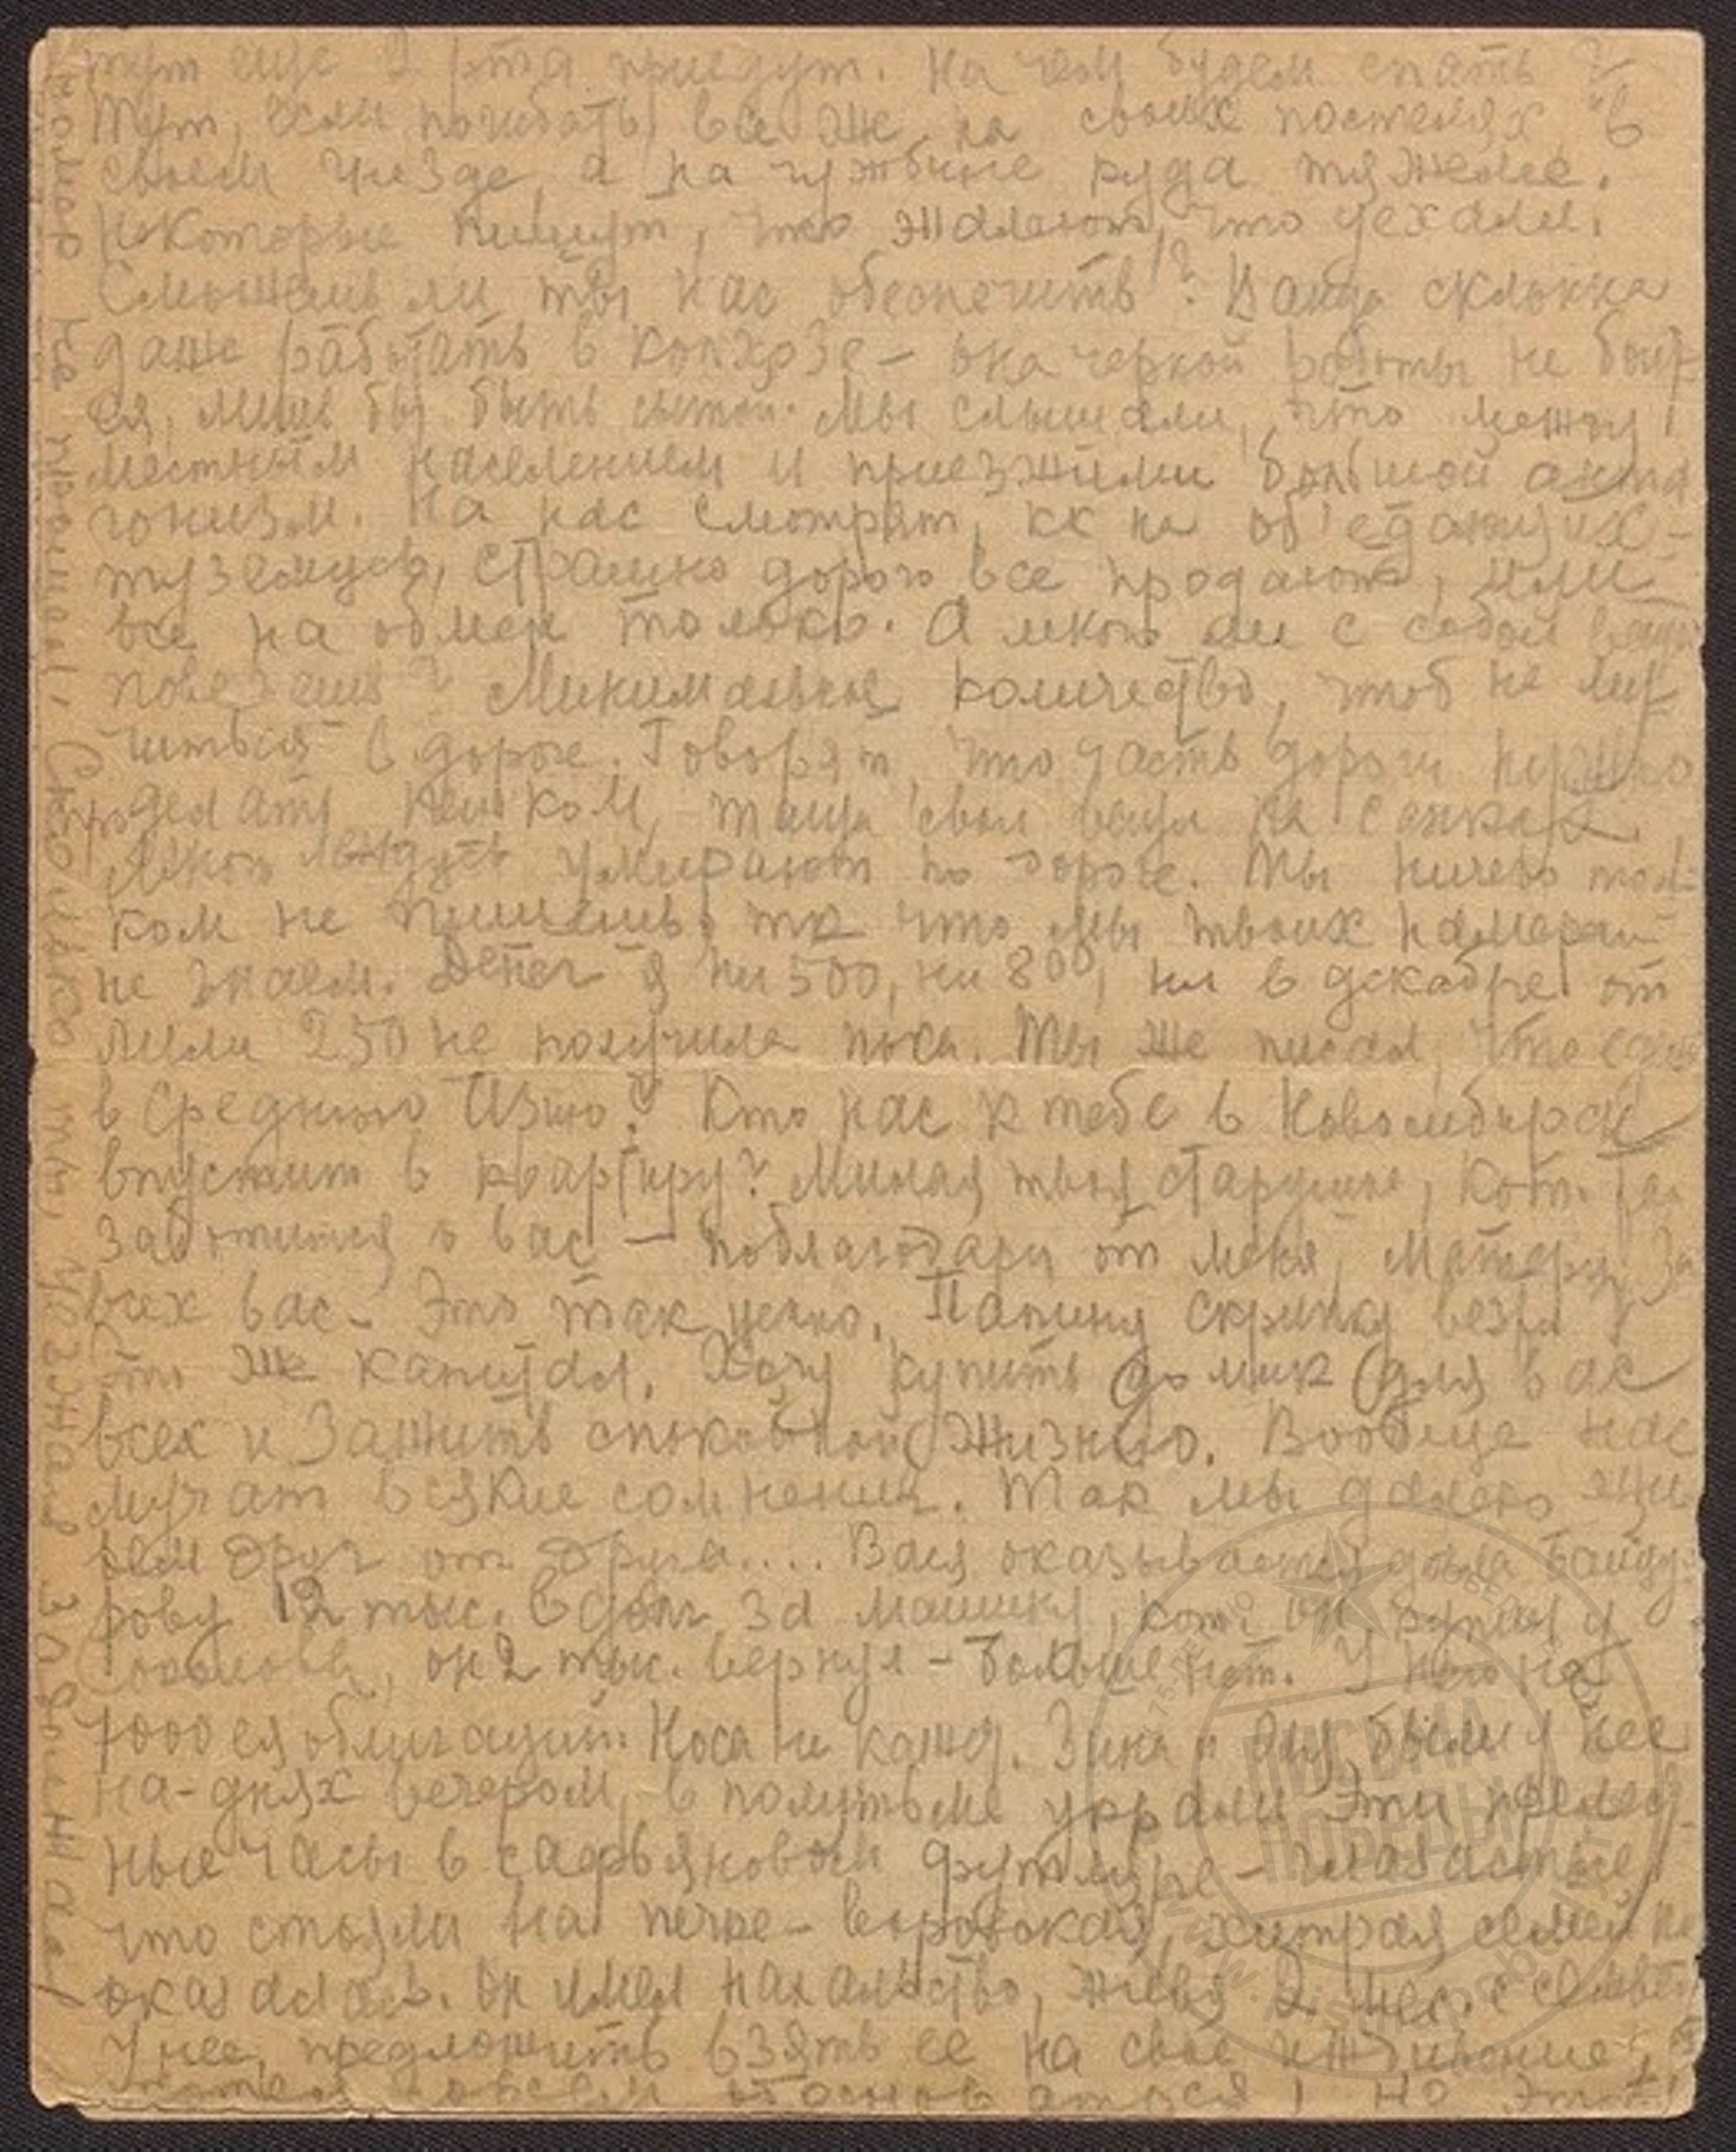 тут еще 2 рта приедут. На чем будем спать?
Тут, если погибать, все ж на своих постелях, в
своем гнезде, а на чужбине куда тяжелее.
Некоторые пишут, что жалеют, что уехали.
Сможешь ли ты нас обеспечить? Ванда склонна
даже работать в колхозе – она черной работы не боит-
ся, лишь бы быть сытой. Мы слышали, что между
местным населением и приезжими большой анта
гонизм. На нас смотрят, кк на об'едающих
туземцев, страшно дорого все продают, или
все на обмен только. А много ли с собой вещей
повезешь? Минимальное количество, чтоб не му-
читься в дороге. Говорят, что часть дороги нужно
проделать пешком, таща свои вещи на санках.
Много умирают по дороге. Ты ничего тол-
ком не пишешь, тк что мы твоих намерений
не знаем. Денег я ни 500, ни 800, ни в декабре от
Лили 250 не получила пока. Ты же писал, что
в Среднюю Азию? Кто нас к тебе в Новосибирск
впустит в квартиру? Милая твоя старушка, кот. так
заботится о вас – поблагодари от меня, матери, за
всех вас – Это так ценно. Папину скрипку вези
это ж капитал. Хочу купить домик для вас
всех и зажить спокойной жизнью. Вообще нас
мучат всякие сомнения. Так мы далеко жи
вем друг от друга.... Вася оказывается дала
рову 12 тыс. в долг за машину, кот. он купил у
он 2 тыс. вернул – больше нет. У него на
7000 ея облигаций. Носа не кажд. Зина и были у нее
на-днях вечером, в полутьме украли эти прелест-
ные часы в сафьяновом футляре –
что стояли на печке – воровская, хитрая семейка
оказалась. Он имел нахальство, живя 2 мес. с семьей
у нее, предложить взять ее на свое иждивение,
этот
не прошел. Сколько ты уезжал задолжал